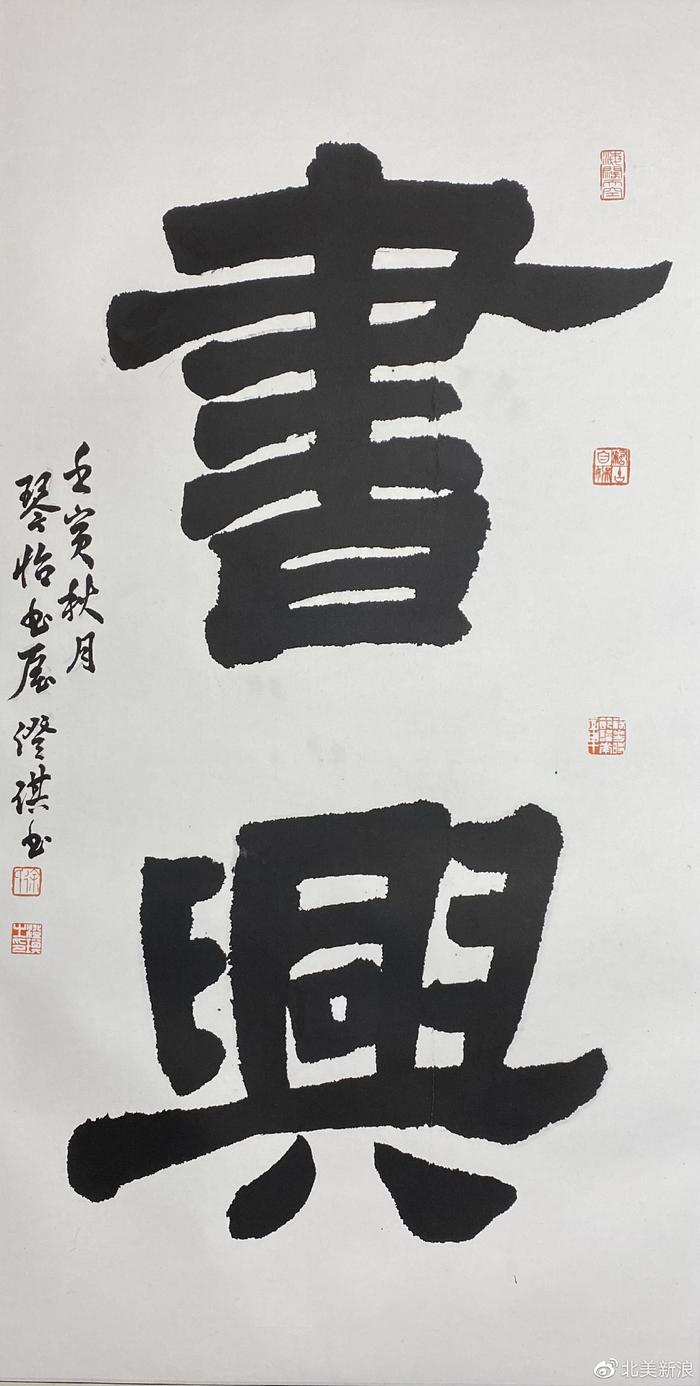 書
興
壬寅秋月
琴怡书屋 澄琪书
北美新浪